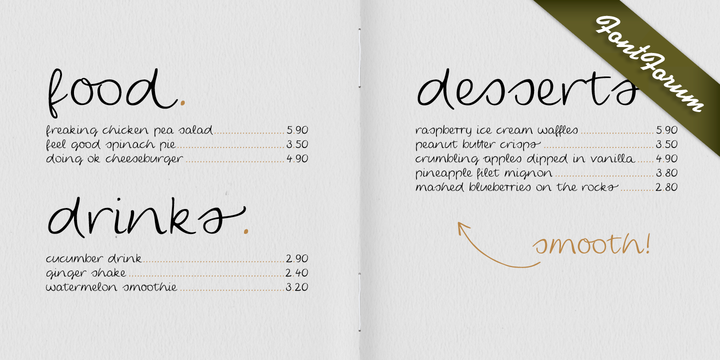 food.
freaking chicken pea salad 5.90
feel good spinach pie 3.50
doing ok cheeseburger 4.90
drinks.
cucumber drink 2.90
ginger shake 2.40
watermelon smoothie 3.20
desserts
raspberry ice cream waffles 5.90
peanut butter crisps 3.50
crumbling apples dipped in vanilla 4.90
pineapple filet mignon 3.80
mashed blueberries on the rocks 2.80
smooth!
FontForum